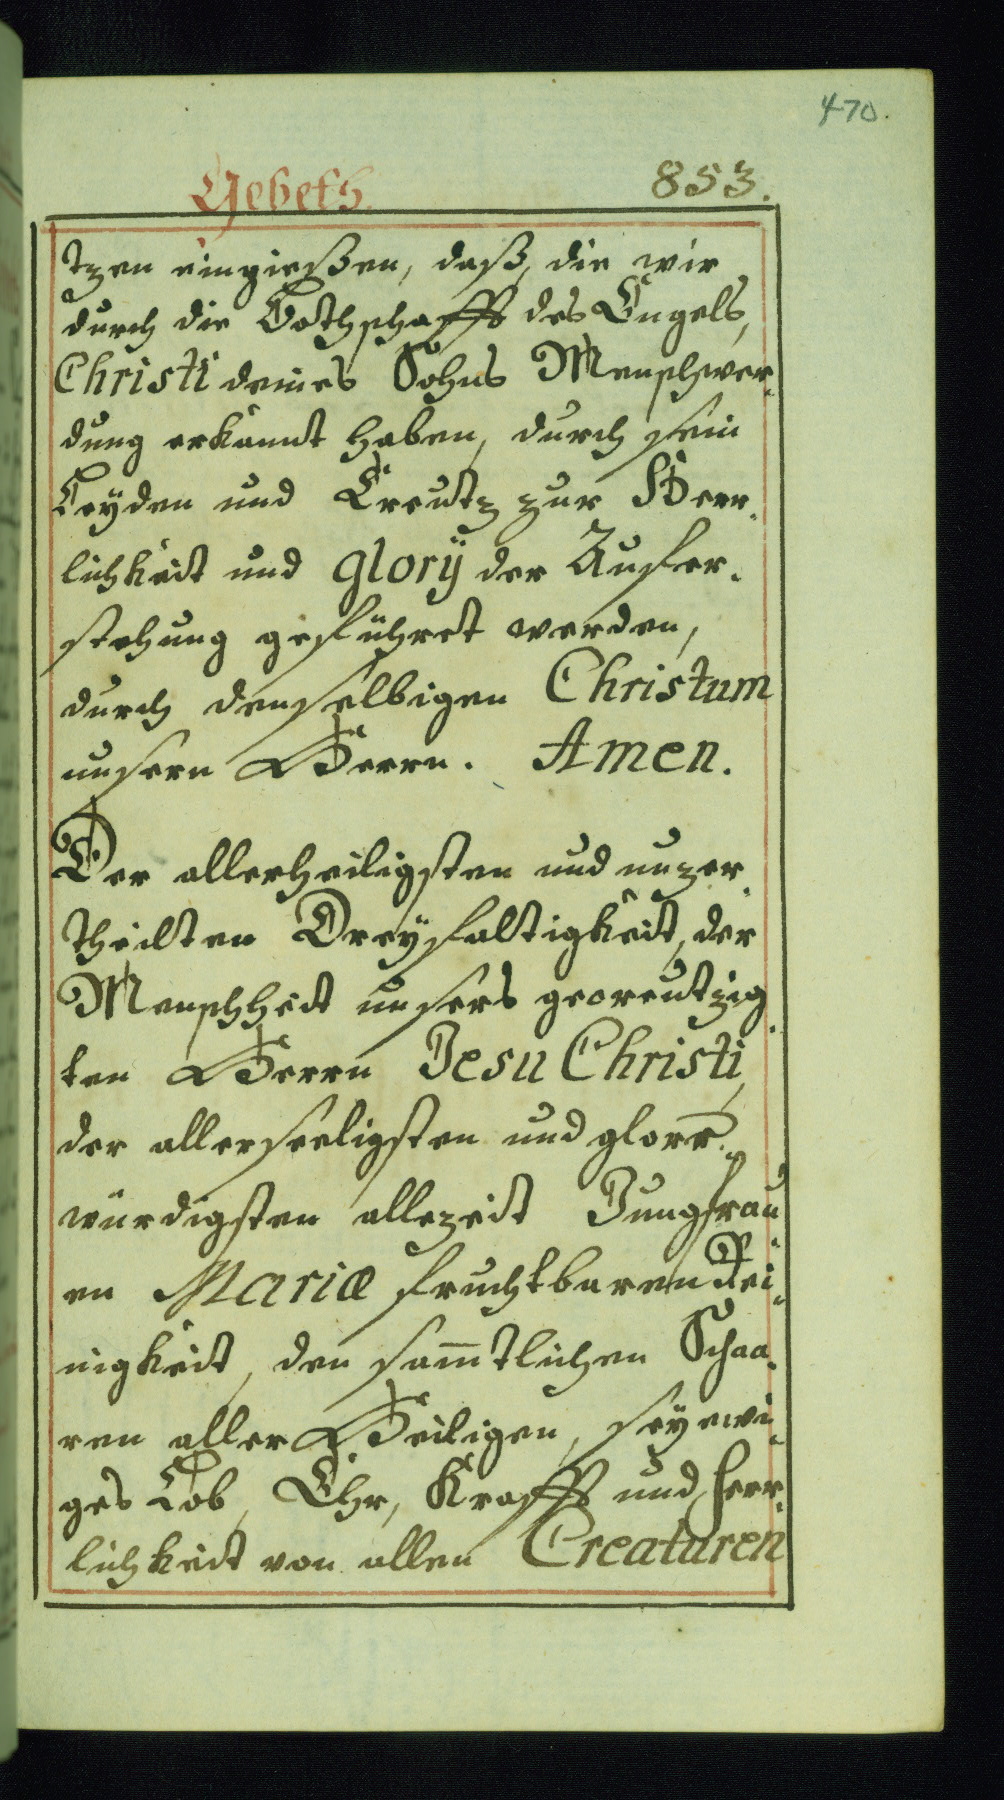 470.
Gebeth. 853.
tzen eingießen, daß, die wir
durch die Bothschafft des Engels,
Christi deines Sohns Menschwer-
dung erkannt haben, durch sein
Leÿden und Creutz zur Herr-
lichkeit und glorÿ der Aufer-
stehung geführet werden,
durch denselbigen Christum
unsern Herrn. Amen.
Der allerheiligsten und unzer-
theilten Dreÿfaltigkeit, der
Menschheit unsers gecreutzig-
ten Herrn Jesu Christi,
der allerseeligsten und glorr-
würdigsten allezeit Jungfrau-
en Mariæ fruchtbaren Rei-
nigkeit, den sam̄tlichen Schaa-
ren aller Heiligen, seÿ ewi-
ges Lob, Ehr, Krafft und Herr-
lichkeit von allen Creaturen